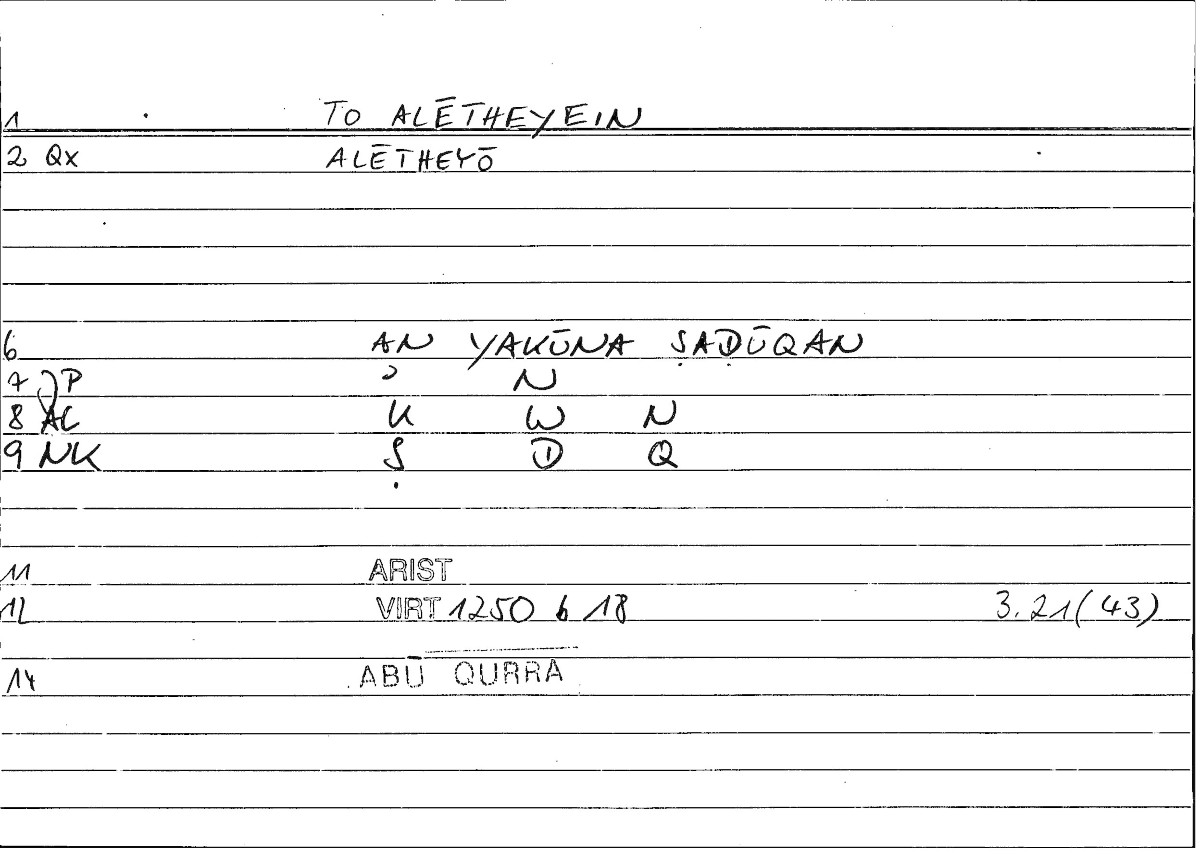 1 TO ALĒTHEYEIN
2 Qx ALĒTHEYŌ
6 AN YAKŪNA ṢADŪQAN
7 P ʾ N
8 AL K W N
9 NK Ṣ D Q
11 ARIST
12 VIRT 1250 b 18 3.21(43)
14 ABŪ QURRA